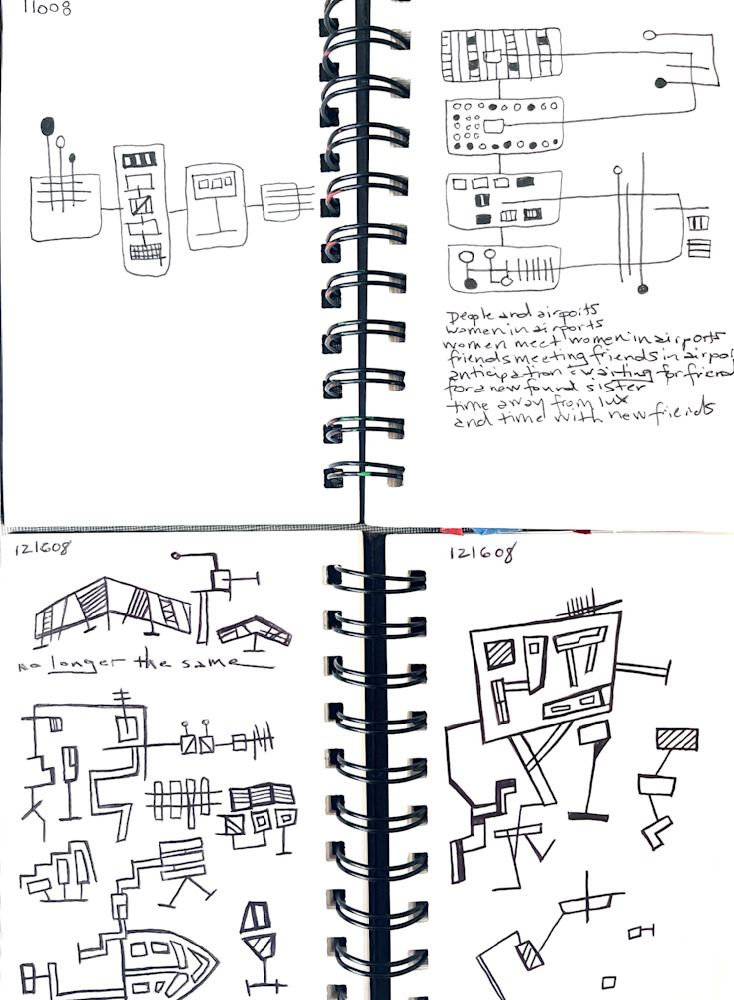 11008
People and airports
women in airports
women meet women in airports
friends meeting friends in airpor
anticipation : waiting for friend
for a new found sister
time away from lux
and time with new friends
121608
no longer the same
121608